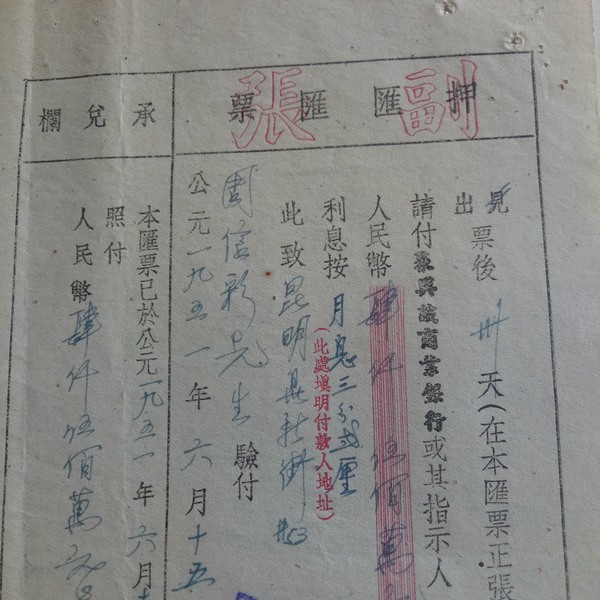 押匯匯票
副張
見
出票後卅天(在本匯票正張
請付聚興誠商業銀行或其指示人
人民幣肆仟伍佰萬
利息按月息三分弍厘
(此處填明付款人地址)
此致昆明
周信彩先生 驗付
公元一九五一年六月十五
承兌欄
本匯票已於公元一九五一年六月十
照付
人民幣肆仟伍佰萬元